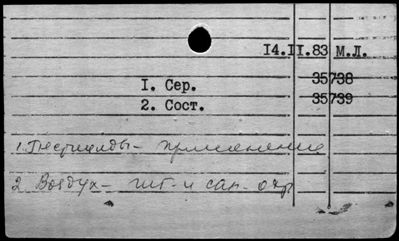 14.II.83 М.Л.
I. Сер. 35738
2. Сост. 35739
1. Пестициды - применение
2. Воздух - гиг. и сан. охр